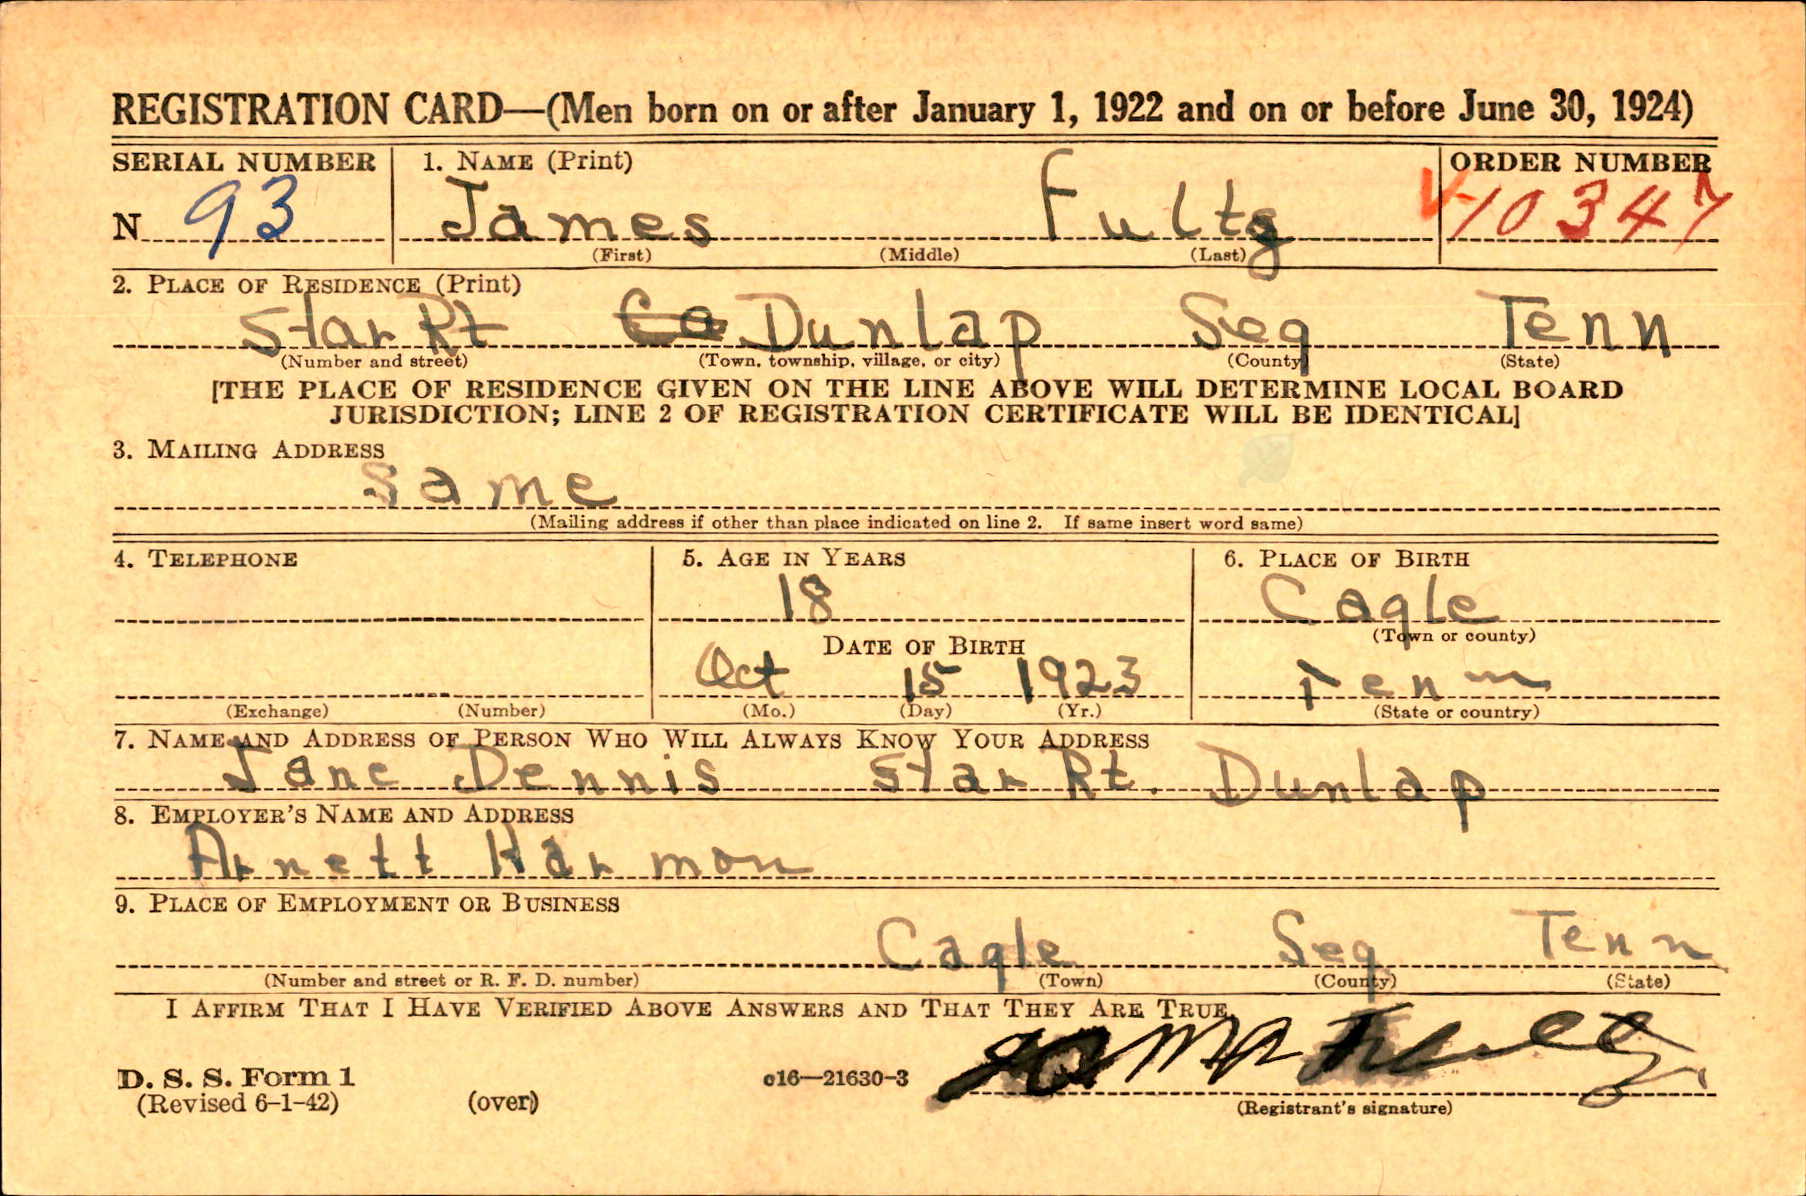 REGISTRATION CARD—(Men born on or after January 1, 1922 and on or before June 30, 1924)
SERIAL NUMBER 1. NAME (Print) ORDER NUMBER
N 93 James Fultz V10347
(First) (Middle) (Last)
2. PLACE OF RESIDENCE (Print)
Star Rt Dunlap Seq Tenn
(Number and street) (Town, township, village, or city) (County) (State)
[THE PLACE OF RESIDENCE GIVEN ON THE LINE ABOVE WILL DETERMINE LOCAL BOARD
JURISDICTION; LINE 2 OF REGISTRATION CERTIFICATE WILL BE IDENTICAL]
3. MAILING ADDRESS
Same
(Mailing address if other than place indicated on line 2. If same insert word same)
4. TELEPHONE 5. AGE IN YEARS 6. PLACE OF BIRTH
18 Cagle
(Town or county)
DATE OF BIRTH
Oct 15 1923 Tenn
(Exchange) (Number) (Mo.) (Day) (Yr.) (State or country)
7. NAME AND ADDRESS OF PERSON WHO WILL ALWAYS KNOW YOUR ADDRESS
Jane Dennis Star Rt. Dunlap
8. EMPLOYER'S NAME AND ADDRESS
Arnett Harmon
9. PLACE OF EMPLOYMENT OR BUSINESS
Cagle Seq Tenn
(Number and street or R. F. D. number) (Town) (County) (State)
I AFFIRM THAT I HAVE VERIFIED ABOVE ANSWERS AND THAT THEY ARE TRUE.
D. S. S. Form 1
(Revised 6-1-42) (over) c16—21630-3
(Registrant's signature)